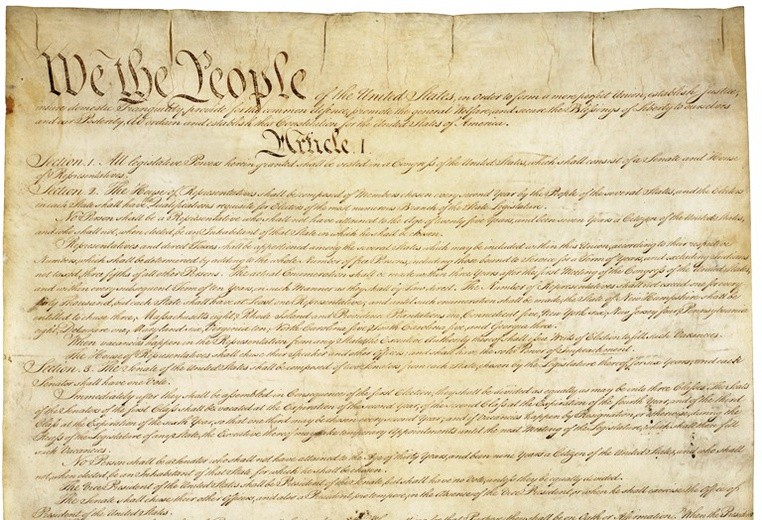 We the People of the United States, in Order to form a more perfect Union, establish Justice,
insure domestic Tranquility, provide for the common defence, promote the general Welfare, and secure the Blessings of Liberty to ourselves
and our Posterity, do ordain and establish this Constitution for the United States of America.
Article. I.
Section. 1. All legislative Powers herein granted shall be vested in a Congress of the United States, which shall consist of a Senate and House
of Representatives.
Section. 2. The House of Representatives shall be composed of Members chosen every second Year by the People of the several States, and the Electors
in each State shall have Qualifications requisite for Electors of the most numerous Branch of the State Legislature.
No Person shall be a Representative who shall not have attained to the Age of twenty five Years, and been seven Years a Citizen of the United States,
and who shall not, when elected, be an Inhabitant of that State in which he shall be chosen.
Representatives and direct Taxes shall be apportioned among the several States which may be included within this Union, according to their respective
Numbers, which shall be determined by adding to the whole Number of free Persons, including those bound to Service for a Term of Years, and excluding Indians
not taxed, three fifths of all other Persons. The actual Enumeration shall be made within three Years after the first Meeting of the Congress of the United States,
and within every subsequent Term of ten Years, in such Manner as they shall by Law direct. The Number of Representatives shall not exceed one for every
thirty Thousand, but each State shall have at Least one Representative; and until such enumeration shall be made, the State of New Hampshire shall be
entitled to chuse three, Massachusetts eight, Rhode-Island and Providence Plantations one, Connecticut five, New-York six, New Jersey four, Pennsylvania
eight, Delaware one, Maryland six, Virginia ten, North Carolina five, South Carolina five, and Georgia three.
When vacancies happen in the Representation from any State, the Executive Authority thereof shall issue Writs of Election to fill such Vacancies.
The House of Representatives shall chuse their Speaker and other Officers; and shall have the sole Power of Impeachment.
Section. 3. The Senate of the United States shall be composed of two Senators from each State, chosen by the Legislature thereof, for six Years; and each
Senator shall have one Vote.
Immediately after they shall be assembled in Consequence of the first Election, they shall be divided as equally as may be into three Classes. The Seats
of the Senators of the first Class shall be vacated at the Expiration of the second Year, of the second Class at the Expiration of the fourth Year, and of the third
Class at the Expiration of the sixth Year, so that one third may be chosen every second Year; and if Vacancies happen by Resignation, or otherwise, during the
Recess of the Legislature of any State, the Executive thereof may make temporary Appointments until the next Meeting of the Legislature, which shall then fill
such Vacancies.
No Person shall be a Senator who shall not have attained to the Age of thirty Years, and been nine Years a Citizen of the United States, and who shall
not, when elected, be an Inhabitant of that State for which he shall be chosen.
The Vice President of the United States shall be President of the Senate, but shall have no Vote, unless they be equally divided.
The Senate shall chuse their other Officers, and also a President pro tempore, in the Absence of the Vice President, or when he shall exercise the Office of
President of the United States.